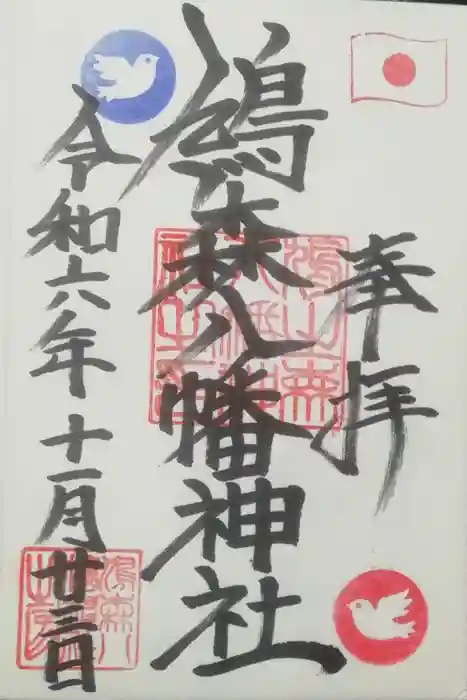 奉拝
鳩森八幡神社
令和六年十一月廿三日